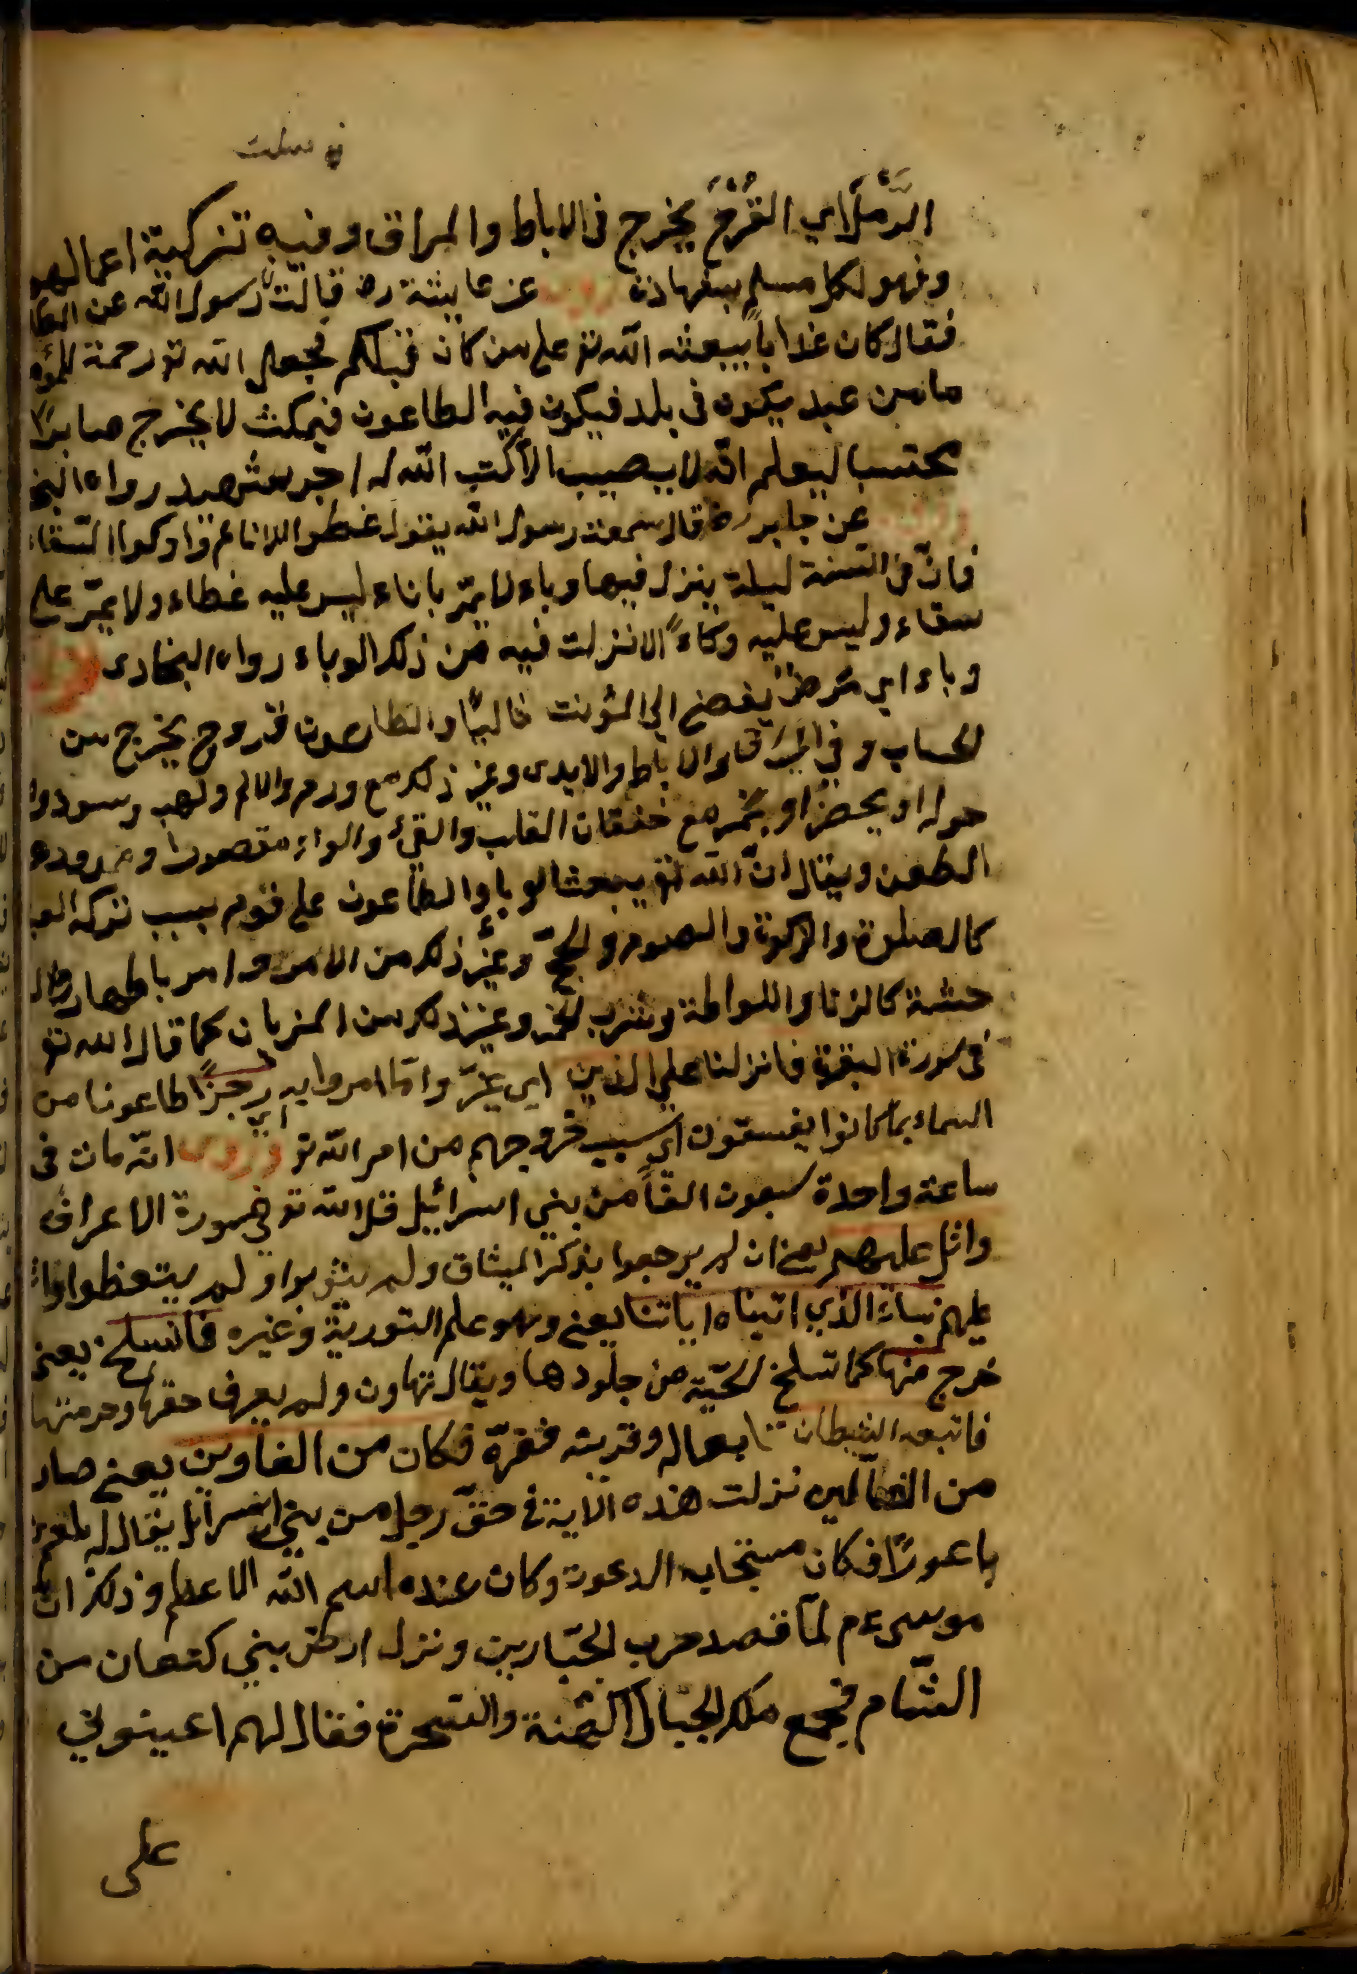 سئلت
الدمل اي القرح يخرج فى الاباط والمراق وفيه تزكية اعمالهم
وهو لكل مسلم شهادة روى عن عايشة رض قالت رسول الله عن
فقال كان عذابا يبعثه الله تع على من كان قبلكم فجعل الله تع رحمة
ما من عبد يكون فى بلد فيكون فيه الطاعون فيمكث لا يخرج صابرا
محتسبا ليعلم انه لا يصيب الا كتب الله له اجر شهيد رواه
وروى عن جابر رض قال سمعت رسول الله يقول غطوا الاناء واوكوا السقاء
فان فى السنة ليلة ينزل فيها وباء لا يمر باناء ليس عليه غطاء ولا يمر على
سقاء وليس عليه وكاء الا نزلت فيه من ذلك الوباء رواه البخارى
وباء اى مرض يفضى الى الموت غالبا والطاعون قروح يخرج من
الجساب وفي المراق والاباط والايدى وغير ذلك مع ورم والالم ولهب وسود
حوله او يحضر او يحمر مع خفقان القلب والقئ والواء مقصورا وممدودا
الطعن ويقال ان الله تع يبعث الوبا والطاعون على قوم بسبب تركه
كالصلوة والزكوة والصوم والحج وغير ذلك من الامر
حشة كالزنا واللواطة وشرب الخمر وغير ذلك من كما قال الله تع
فى سورة البقرة فانزلنا على الذين اى غير وا ما امروا به رجزا اى طاعونا من
السماء بما كانوا يفسقون اى بسبب خروجهم من امر الله تع وروى انه مات فى
ساعة واحدة سبعون الفا من بني اسرائيل قال الله تع فى سورة الاعراف
واتل عليهم يعنى ان لم يرجعوا بذكر الميثاق ولم يتوبوا ولم يتعظوا
عليهم نباء الذي اتيناه اياتنا يعنى وهو علم التورية وغيره فانسلخ يعنى
خرج منها كما تسلخ الحية من جلودها ويقال تهاون ولم يعرف حقها وحرمتها
فاتبعه الشيطان فكان من الغاوين يعنى صار
من الضالين نزلت هذه الاية فى حق رجل من بني اسرائيل يقال له بلعم
باعورا فكان مستجابه الدعوت وكان عنده اسم الله الاعظم وذلك ان
موسى ءم لما قصد حرب الجبارين ونزل ارض بني كنعان من
الشام فجمع ملك الجبار الكهنة والسحرة فقال لهم اعينوني
على